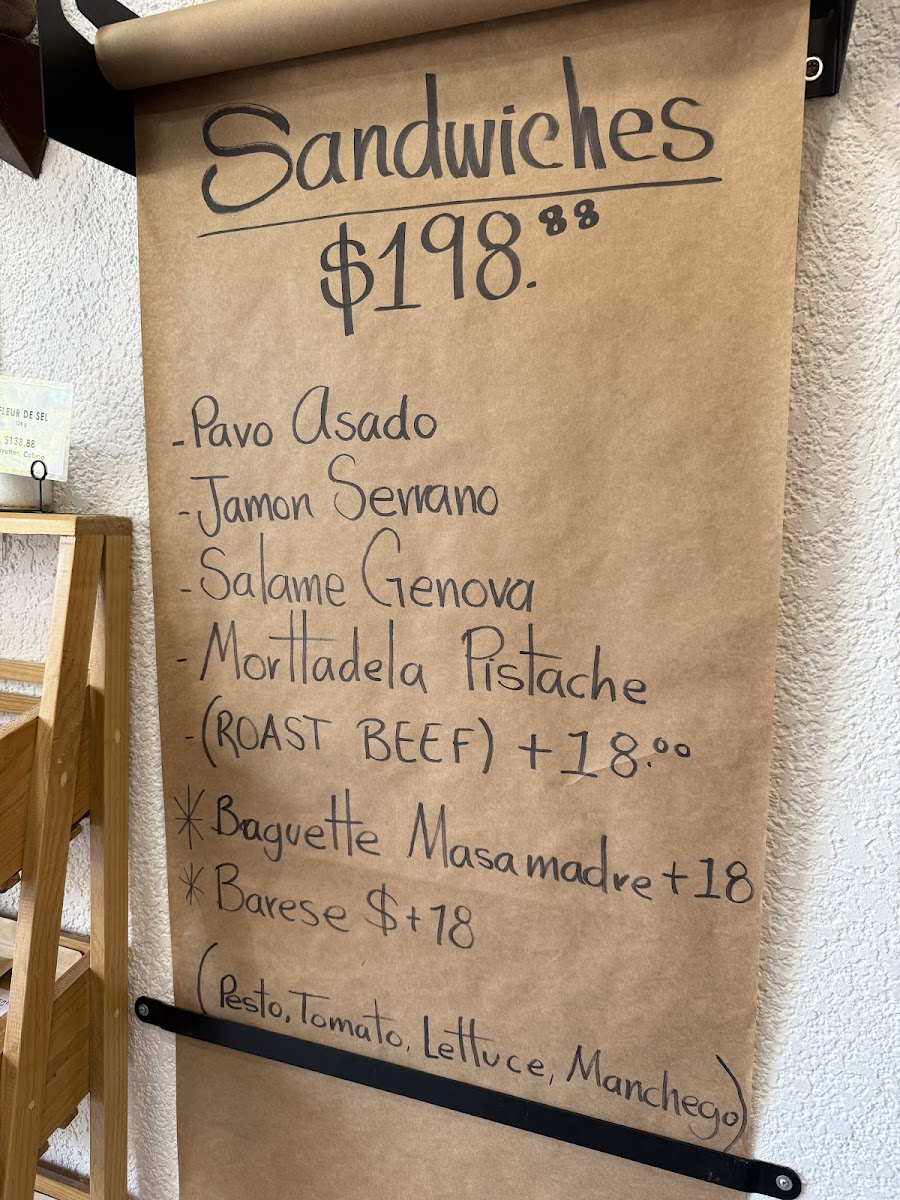 Sandwiches
$198.88
-Pavo Asado
-Jamon Serrano
-Salame Genova
-Morttadela Pistache
-(ROAST BEEF) +18.00
*Baguette Masamadre +18
*Barese $+18
(Pesto, Tomato, Lettuce, Manchego)
FLEUR DE SEL
$138.88